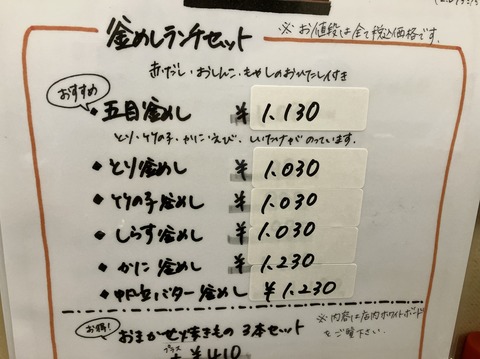 釜めしランチセット
※お値段は全て税込価格です。
赤だし・おしんこ・もやしのおひたし付き
おすすめ
・五目釜めし ¥1.130
とり・竹の子・かに・えび、しいたけがのっています。
・とり釜めし ¥1.030
・竹の子釜めし ¥1.030
・しらす釜めし ¥1.030
・かに釜めし ¥1.230
・帆立バター釜めし ¥1.230
お得!
おまかせ焼きもの 3本セット
プラス ¥410
※内容は店内ホワイトボード
をご覧下さい。